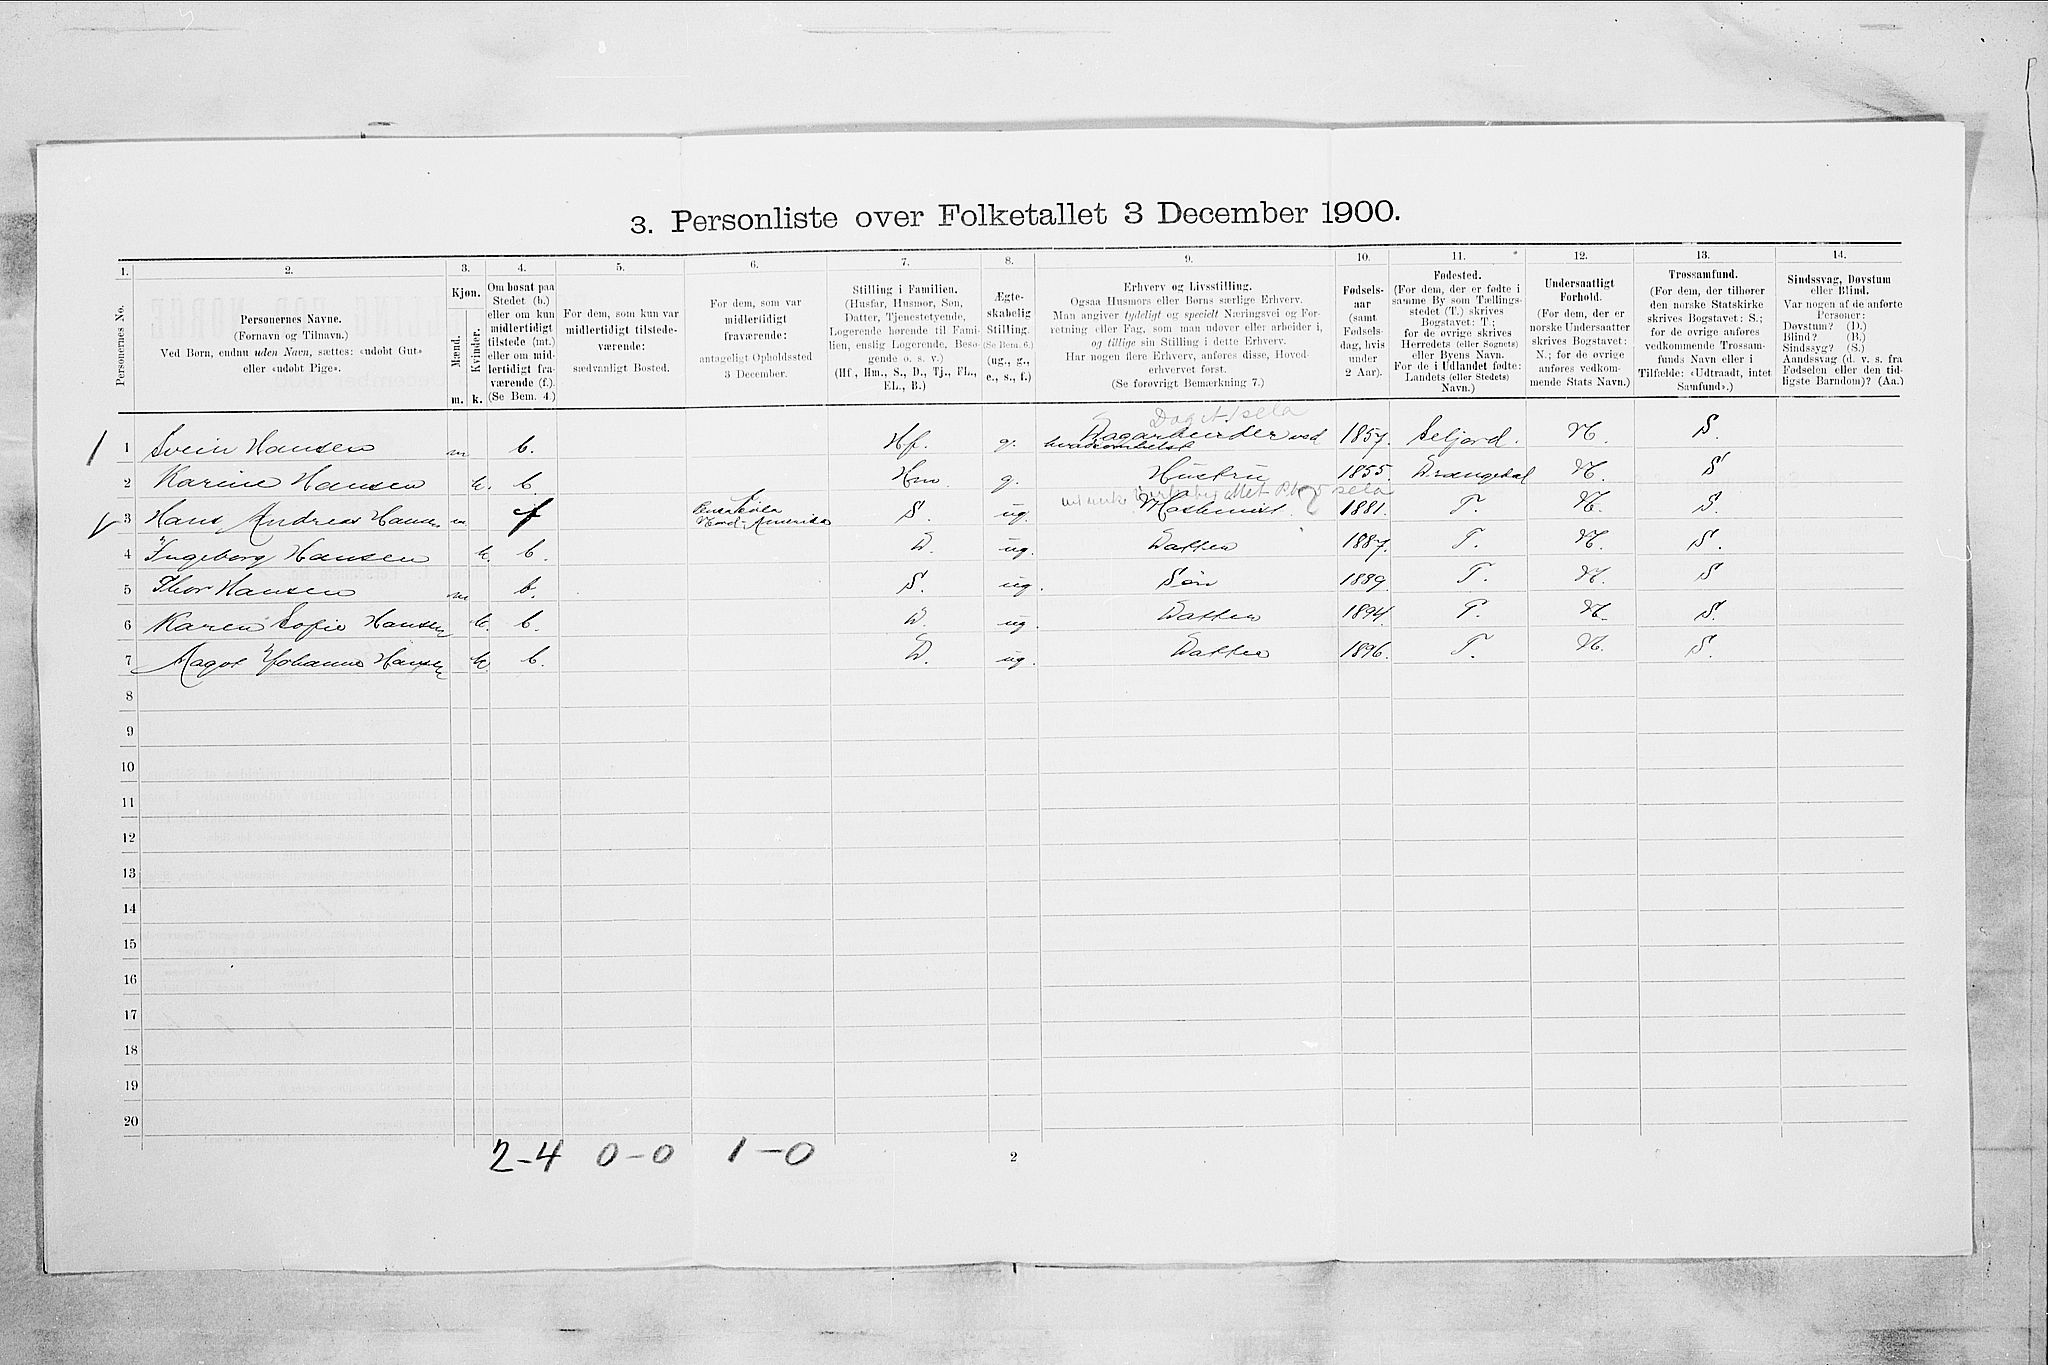 3. Personliste over Folketallet 3 December 1900.
1. 2. 3. 4. 5. 6. 7. 8. 9. 10. 11. 12. 13. 14.
Personernes No.
Personernes Navne.
(Fornavn og Tilnavn.)
Ved Børn, endnu uden Navn, sættes: «udøbt Gut»
eller «udøbt Pige».
Kjøn.
Mænd.
Kvinder.
m. k.
Om bosat paa
Stedet (b.)
eller om kun
midlertidigt
tilstede (mt.)
eller om mid-
lertidigt fra-
værende (f.).
(Se Bem. 4.)
For dem, som kun var
midlertidigt tilstede-
værende:
sædvanligt Bosted.
For dem, som var
midlertidigt
fraværende:
antageligt Opholdssted
3 December.
Stilling i Familien.
(Husfar, Husmor, Søn,
Datter, Tjenestetyende,
Logerende hørende til Fami-
lien, enslig Logerende, Besø-
gende o. s. v.)
(Hf., Hm., S., D., Tj., FL.,
EL., B.)
Ægte-
skabelig
Stilling.
(Se Bem. 6.)
(ug., g.,
e., s., f.)
Erhverv og Livsstilling.
Ogsaa Husmors eller Børns særlige Erhverv.
Man angiver tydeligt og specielt Næringsvei og For-
retning eller Fag, som man udøver eller arbeider i,
og tillige sin Stilling i dette Erhverv.
Har nogen flere Erhverv, anføres disse, Hoved-
erhvervet først.
(Se forøvrigt Bemærkning 7.)
Fødsels-
aar
(samt
Fødsels-
dag, hvis
under
2 Aar).
Fødested.
(For dem, der er fødte i
samme By som Tællings-
stedet (T.) skrives
Bogstavet: T.;
for de øvrige skrives
Herredets (eller Sognets)
eller Byens Navn.
For de i Udlandet fødte:
Landets (eller Stedets)
Navn.)
Undersaatligt
Forhold.
(For dem, der er
norske Undersaatter
skrives Bogstavet:
N.; for de øvrige
anføres vedkom-
mende Stats Navn.)
Trossamfund.
(For dem, der tilhører
den norske Statskirke
skrives Bogstavet: S.;
for de øvrige anføres
vedkommende Trossam-
funds Navn eller i
Tilfælde: «Udtraadt, intet
Samfund».)
Sindssvag, Døvstum
eller Blind.
Var nogen af de anførte
Personer:
Døvstum? (D.)
Blind? (B.)
Sindssyg? (S.)
Aandssvag (d. v. s. fra
Fødselen eller den tid-
ligste Barndom)? (Aa.)
1 Svein Hansen m b. Hf. g. Dagarbeider ved hvadsomhelst 1857. Seljord. N. S.
2 Karine Hansen k. b. Hm. g. Hustru 1855. Drangedal N. S
3 Hans Andreas Hansen m f Nord-Amerika S. ug. 1881. T. N. S.
4 Ingeborg Hansen k. b. D. ug. Datter 1887. T. N. S.
5 Thor Hansen m b. S. ug. Søn 1889. T. N. S
6 Karen Sofie Hansen k. b. D. ug. Datter 1894 T. N. S.
7 Aagot Johanne Hansen k b. D. ug. Datter 1896. T. N. S.
8
9
10
11
12
13
14
15
16
17
18
19
20
2-4 0-0 1-0
2